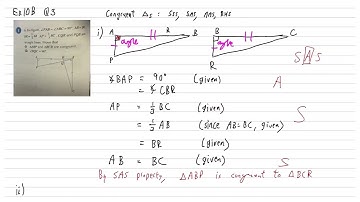 Ex10B Q3
Congruent Δs : SSS, SAS, AAS, RHS
i)
A R B
B C
angle angle
P R
S A S
∡BAP = 90° (given)
= ∡CBR
A
AP = 1/3 BC (given)
= 1/3 AB (since AB=BC, given)
= BR (given)
S
AB = BC (given)
S
By SAS property, ΔABP is congruent to ΔBCR
ii)